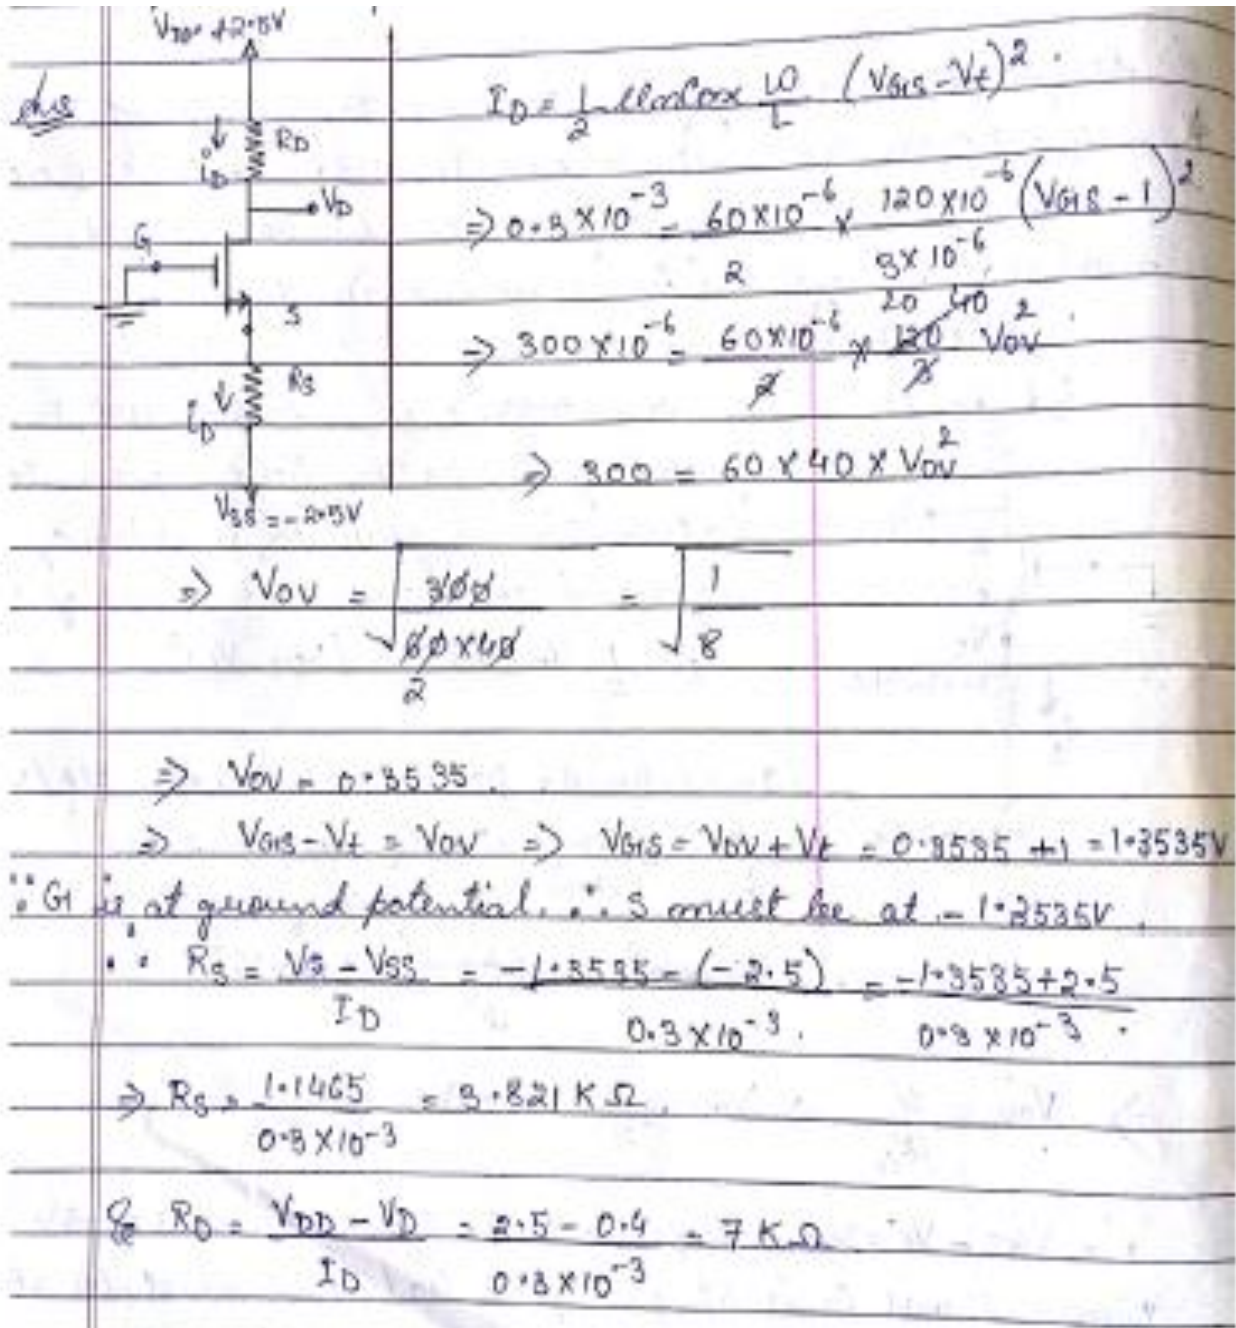 VDD = +2.5V
Ans
ID = 1/2 μnCox W/L (VGS - Vt)²
iD RD
VD
⇒ 0.3 × 10⁻³ = 60×10⁻⁶/2 × 120×10⁻⁶/3×10⁻⁶ (VGS - 1)²
G
S
⇒ 300 × 10⁻⁶ = 60×10⁻⁶/2 × 120/3 VOV²
20 40
RS
iD
⇒ 300 = 60 × 40 × VOV²
VSS = -2.5V
⇒ VOV = √(300/60×40) = √(1/8)
2
⇒ VOV = 0.3535.
⇒ VGS - Vt = VOV ⇒ VGS = VOV + Vt = 0.3535 + 1 = 1.3535V
∵ G is at ground potential, ∴ S must be at - 1.3535V.
∴ RS = VS - VSS/ID = -1.3535 - (-2.5)/0.3×10⁻³. = -1.3535+2.5/0.3×10⁻³.
⇒ RS = 1.1465/0.3×10⁻³ = 3.821 KΩ.
& RD = VDD - VD/ID = 2.5 - 0.4/0.3×10⁻³ = 7 KΩ